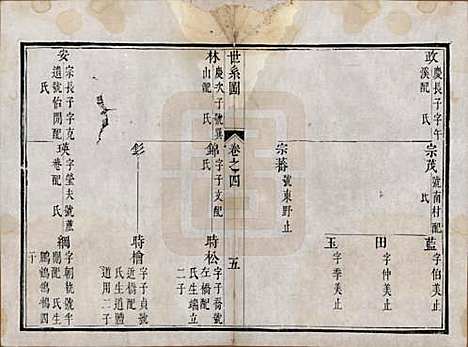 政
慶長子字午
溪配 氏
宗茂
號南村配
氏
藍
字伯美止
田
字仲美止
玉
字季美止
宗蕃
號東野止
世系圖
卷之四
五
林
慶次子號巽
山配 氏
錦
字子文配
氏
時松
字子喬號
左橋配
氏生端立
二子
彭
時檜
字子貞號
近橋配
氏生道體
道用二子
安
宗長子字克
道號怡閒配
氏
瑛
字瑩夫號蕙
巷配 氏
綱
字朝軌號半
廳配 氏生
鵬鶴鶴鶚四
子